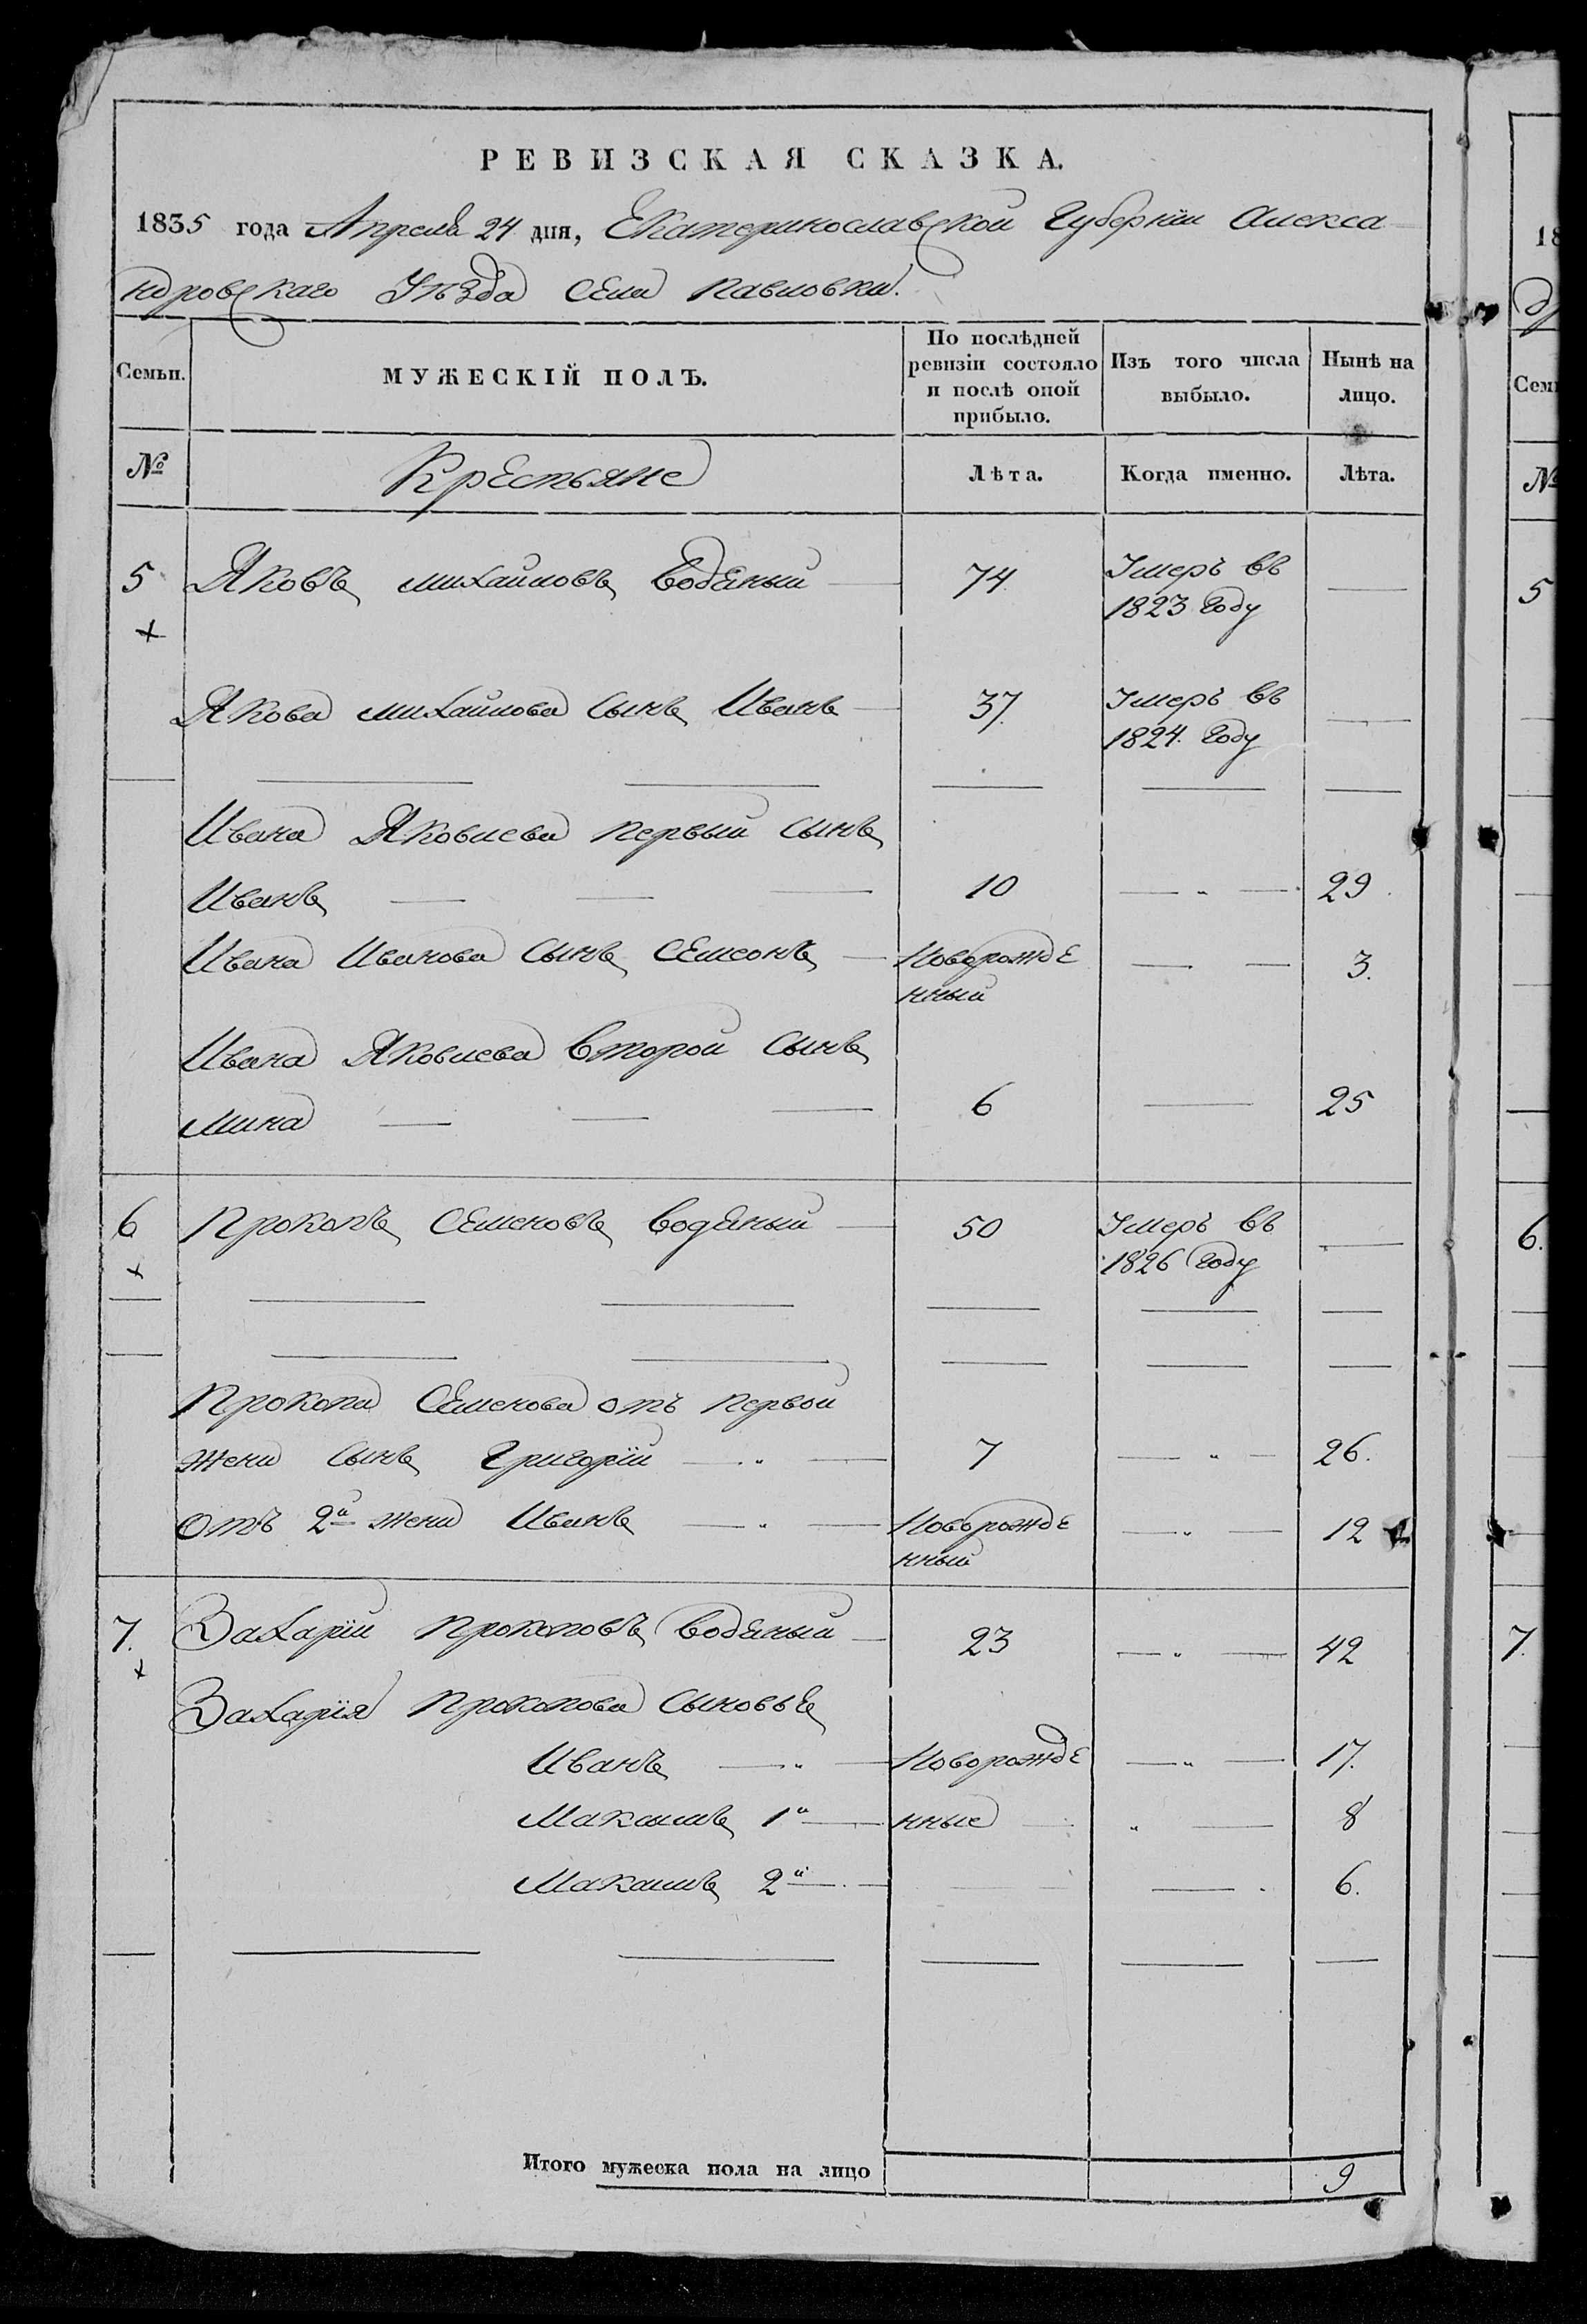 РЕВИЗСКАЯ СКАЗКА.
1835 года Апреля 24 дня, Екатеринославской Губерніи Алекса
ндровскаго Уѣзда Села Павловки.
Семьи. МУЖЕСКІЙ ПОЛЪ. По послѣдней ревизіи состояло и послѣ оной прибыло. Изъ того числа выбыло. Нынѣ на лицо.
№ Крестьяне Лѣта. Когда именно. Лѣта.
5 Яковъ Михайловъ Водяный — 74 Умеръ въ —
1823 году
Якова Михайлова Сынъ Иванъ — 37. Умеръ въ —
1824. году
Ивана Яковлева первый Сынъ
Иванъ — — — 10 — „ — 29.
Ивана Иванова Сынъ Семсонъ — Новорожде — — 3.
нный
Ивана Яковлева Второй Сынъ
Мина — — — 6 — 25
6 Прокопъ Семеновъ Водяный — 50 Умеръ въ —
1826 году
Прокопа Семенова отъ первой
жены Сынъ Григорій — „ — 7 — „ — 26.
отъ 2й жены Иванъ — „ — Новорожде — „ — 12
нный
7. Захарій Прокоповъ Водяный — 23 — „ — 42
Захарія Прокопова Сыновья
Иванъ — „ — Новорожде — „ — 17.
Максимъ 1й — нные — „ — 8
Максимъ 2й — — — 6.
Итого мужеска пола на лицо 9
18
Семь
№
5
6.
7.